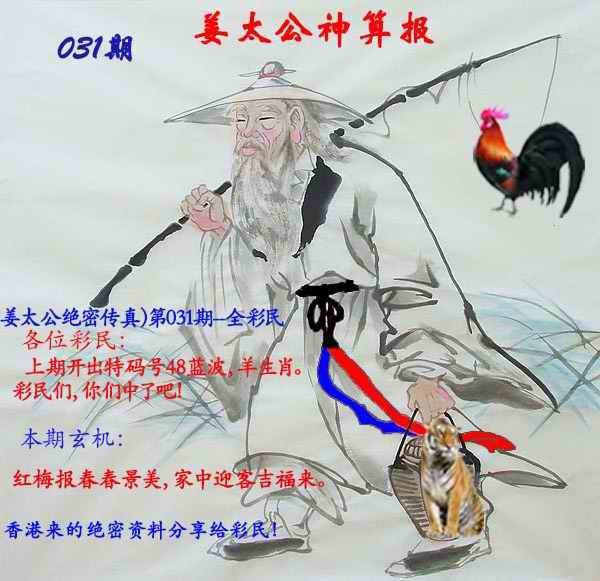 姜太公神算报
031期
姜太公绝密传真)第031期--全彩民
各位彩民:
上期开出特码号48蓝波,羊生肖。
彩民们,你们中了吧!
本期玄机:
红梅报春春景美,家中迎客吉福来。
香港来的绝密资料分享给彩民!